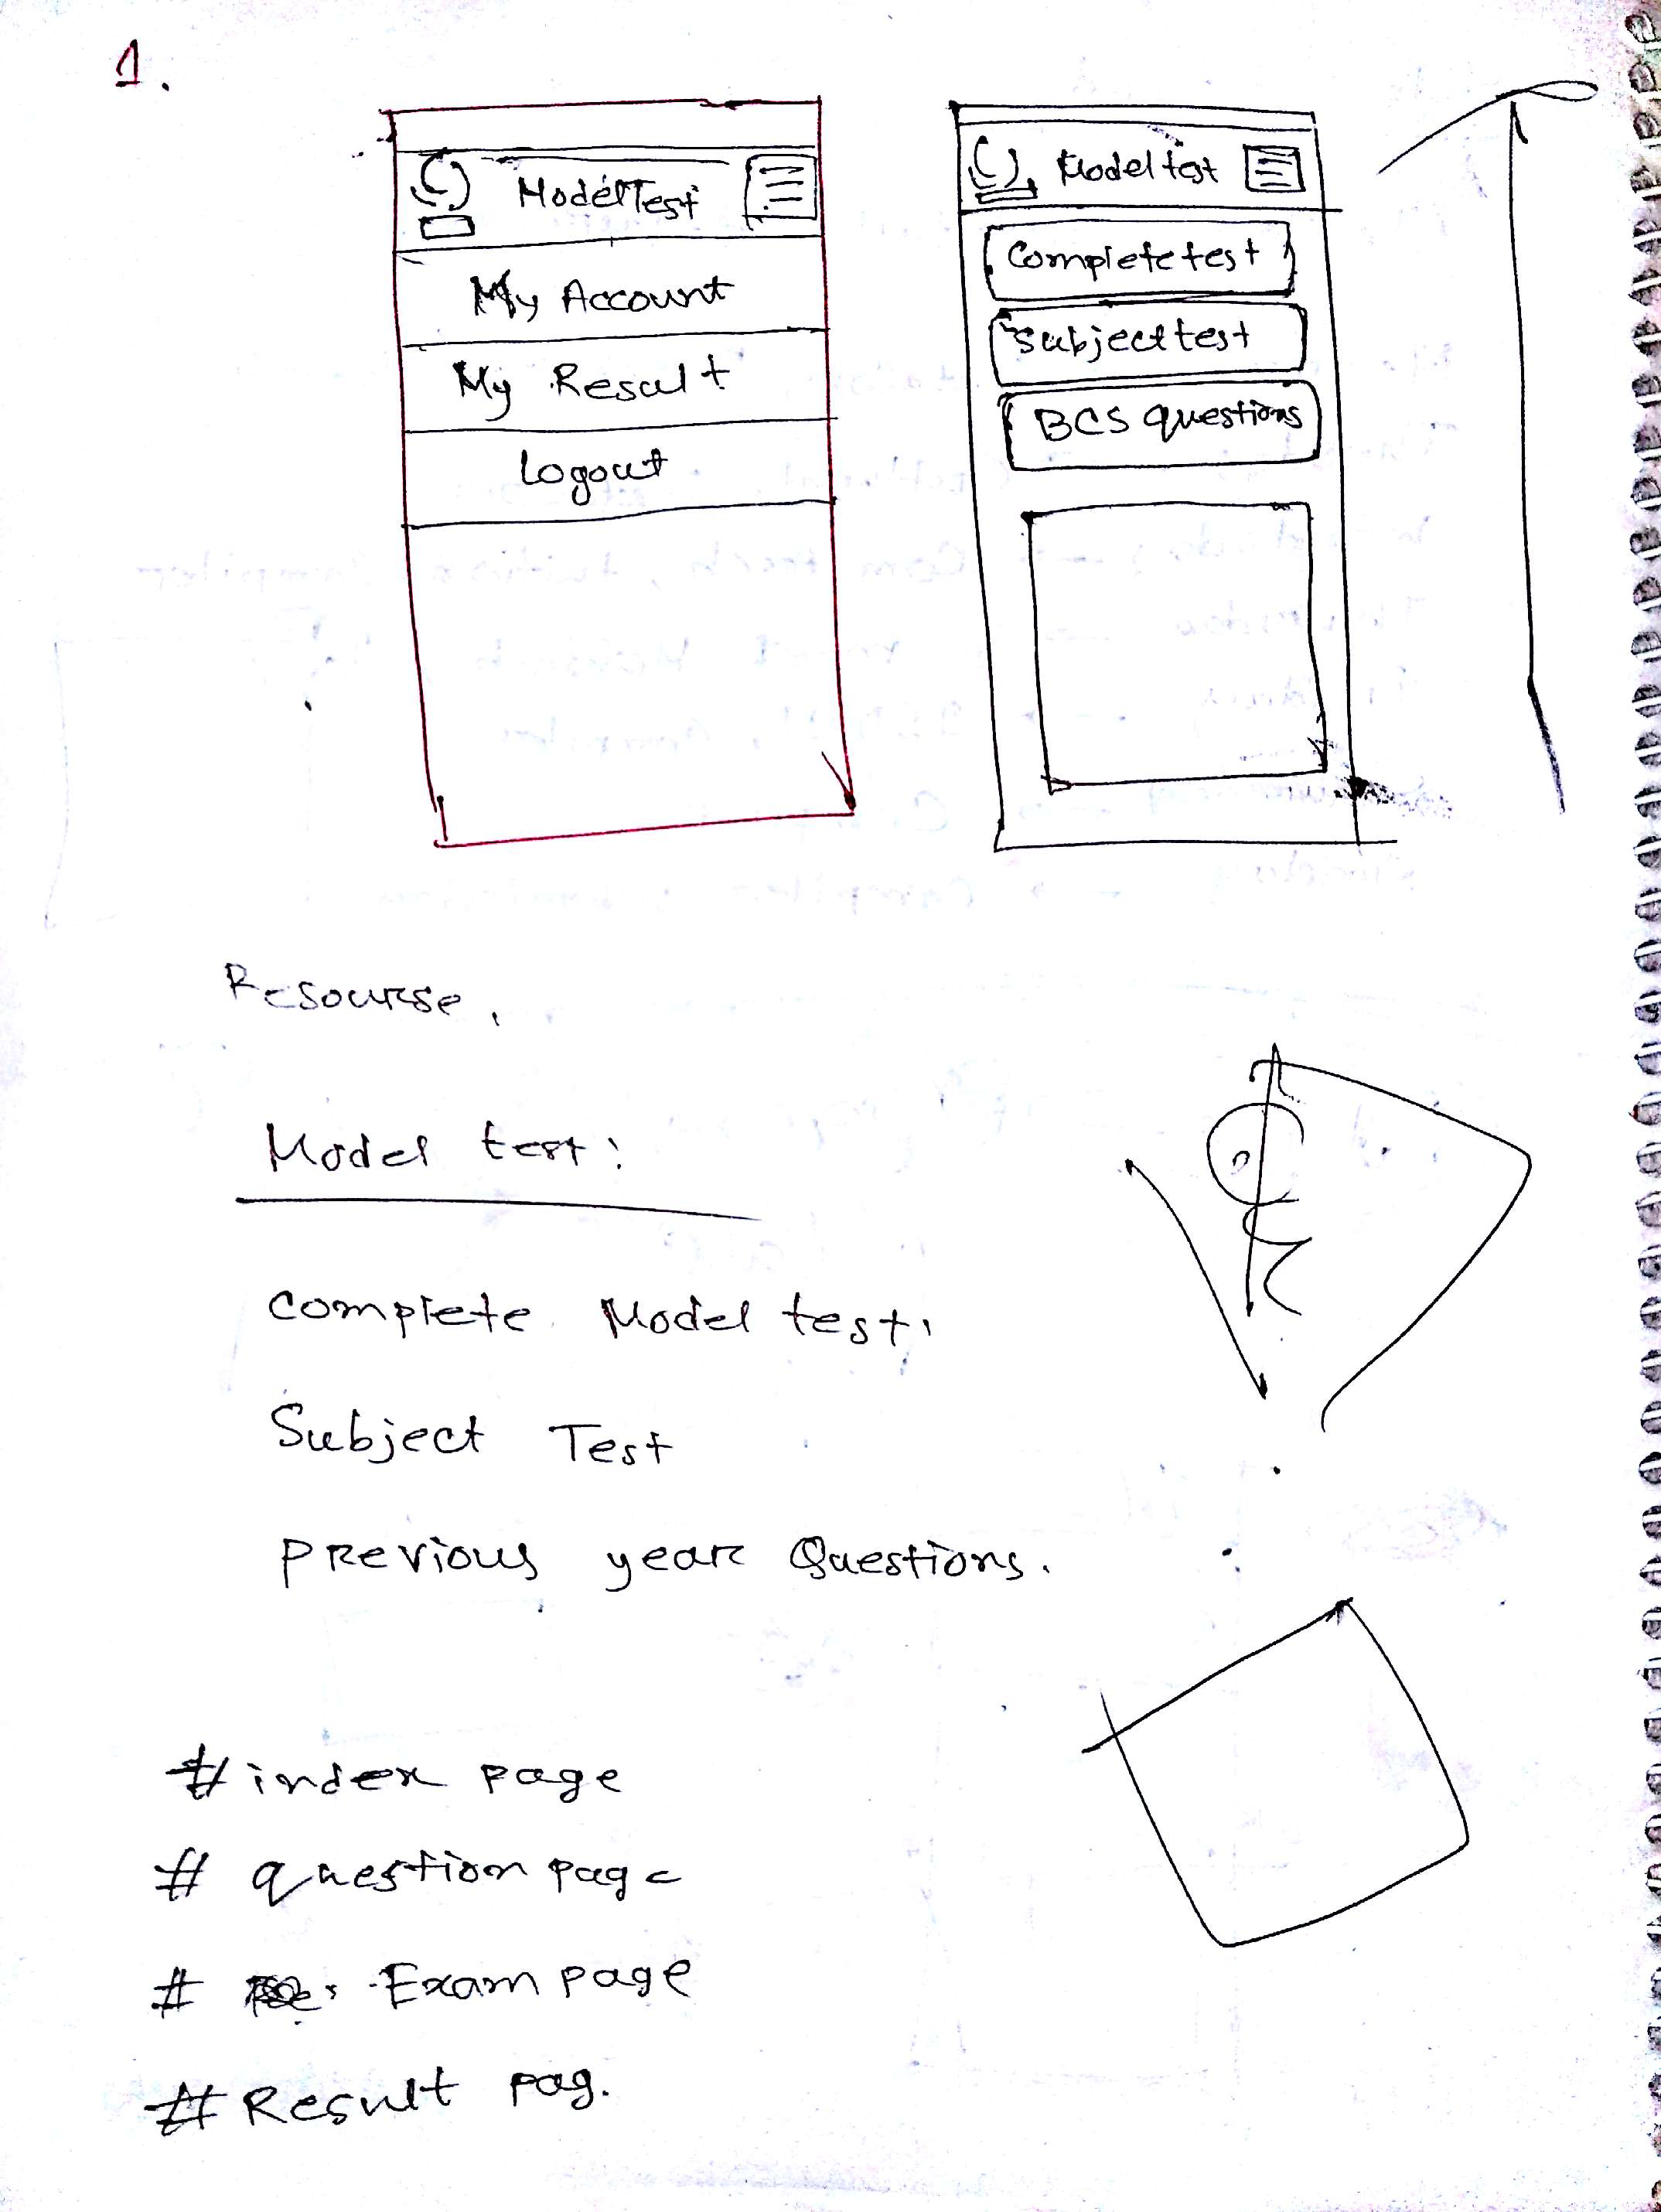 1.
ModelTest
My Account
My Result
Logout
Model test
Complete test
Subject test
BCS questions
Resourse,
Model test:
Complete Model test,
Subject Test
Previous year Questions.
# index page
# question page
# Exam page
# Result pag.